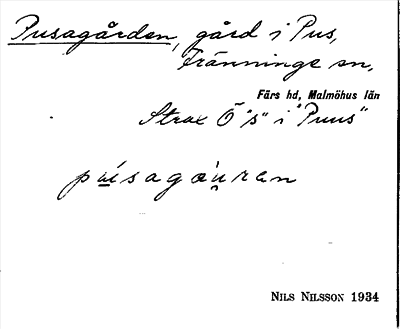 Pusagården, gård i Pus,
Tränninge sn,
Färs hd, Malmöhus län
Strax Ö "s" i "Puus"
púsagáu̯ran
NILS NILSSON 1934